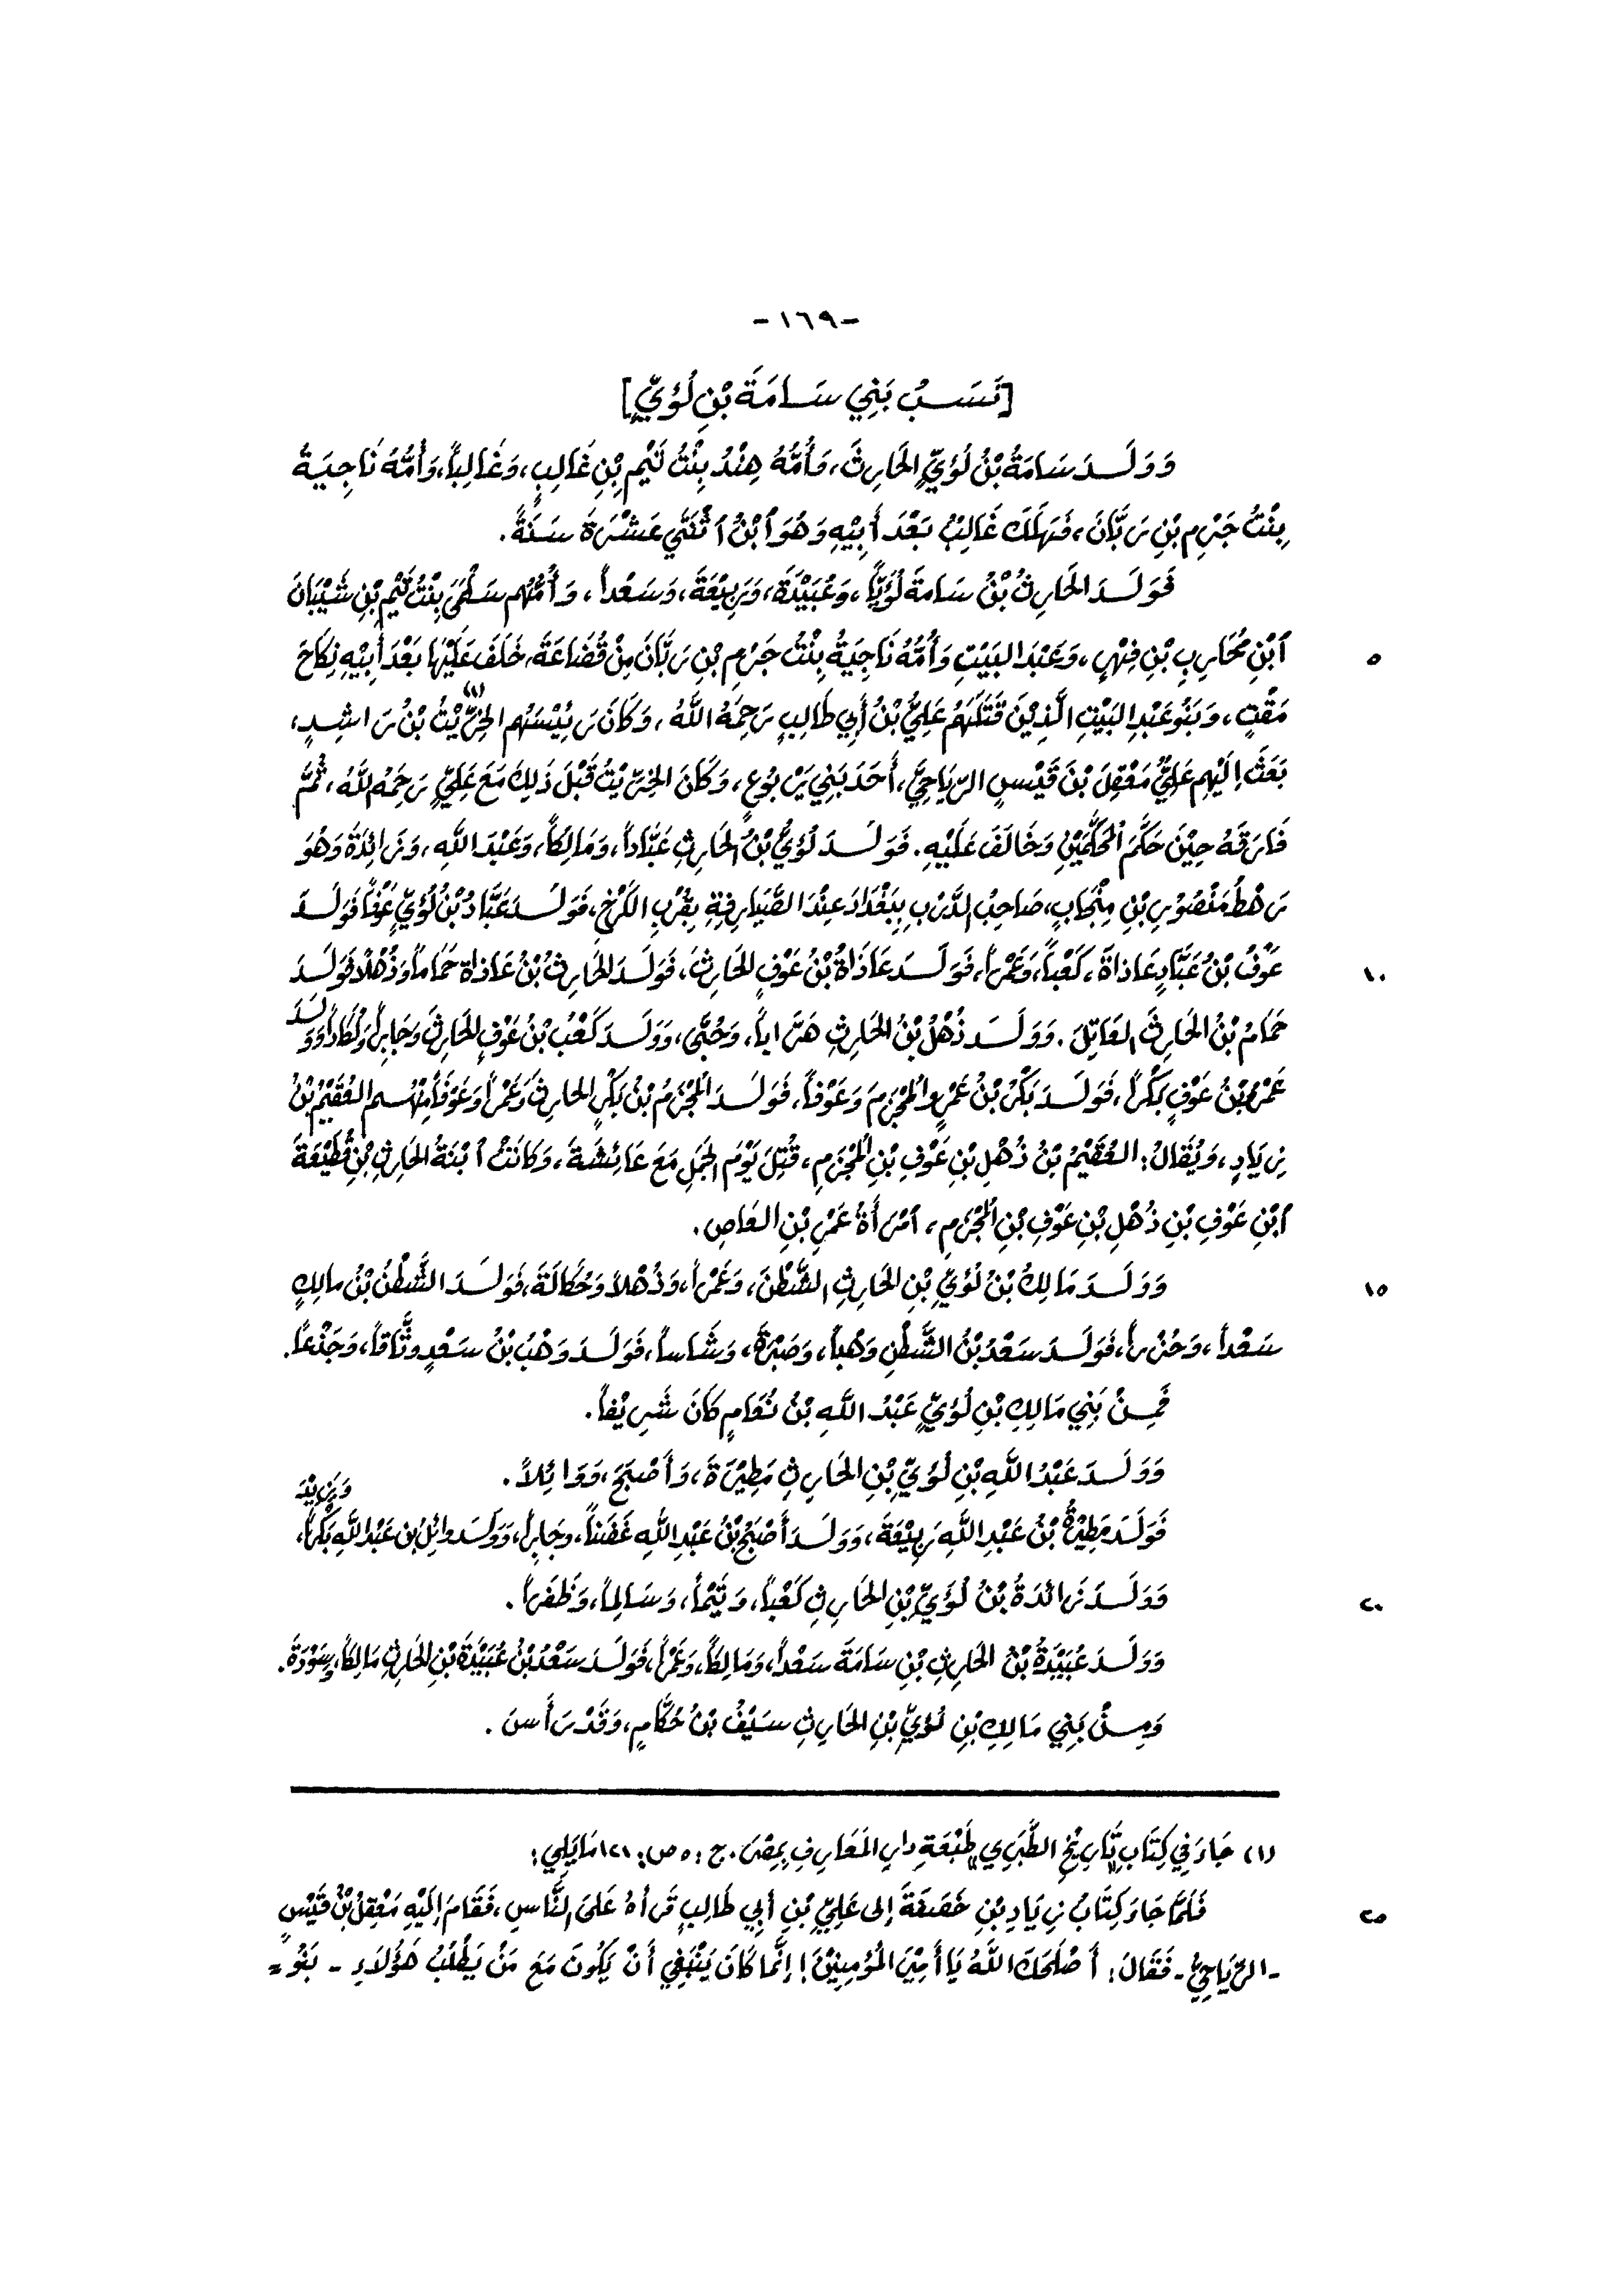 -١٦٩-
[نَسَبُ بَنِي سَامَةَ بْنِ لُؤَيٍّ]
وَوَلَدَ سَامَةُ بْنُ لُؤَيٍّ الحَارِثَ، وَأُمُّهُ هِنْدُ بِنْتُ تَيْمِ بْنِ غَالِبٍ، وَغَالِباً، وَأُمُّهُ نَاجِيَةُ
بِنْتُ جَرْمِ بْنِ رَبَّانَ، فَهَلَكَ غَالِبُ بَعْدَ أَبِيْهِ وَهُوَ ٱبْنُ ٱثْنَتَيْ عَشْرَةَ سَنَةً.
فَوَلَدَ الحَارِثُ بْنُ سَامَةَ لُؤَيّاً، وَعُبَيْدَةَ، وَرَبِيْعَةَ، وَسَعْداً، وَأُمُّهُم سَلْمَى بِنْتُ تَيْمِ بْنِ شَيْبَانَ
٥ ٱبْنِ مُحَارِبِ بْنِ فِهْرٍ، وَعَبْدَ البَيْتِ وَأُمُّهُ نَاجِيَةُ بِنْتُ جَرْمِ بْنِ رَبَّانَ مِنْ قُضَاعَةَ، خَلَفَ عَلَيْهَا بَعْدَ أَبِيْهِ نِكَاحَ
مَقْتٍ، وَبَنُو عَبْدِ البَيْتِ الَّذِيْنَ قَتَلَهُم عَلِيُّ بْنُ أَبِي طَالِبٍ رَحِمَهُ اللَّهُ، وَكَانَ رَئِيْسَهُم الخِرِّيْتُ (١) بْنُ رَاشِدٍ،
بَعَثَ إِلَيْهِم عَلِيٌّ مَعْقِلَ بْنَ قَيْسٍ الرِّيَاحِيَّ، أَحَدَ بَنِي يَرْبُوعٍ، وَكَانَ الخِرِّيْتُ قَبْلَ ذَلِكَ مَعَ عَلِيٍّ رَحِمَهُ اللَّهُ، ثُمَّ
فَارَقَهُ حِيْنَ حَكَّمَ الحَكَمَيْنِ وَخَالَفَ عَلَيْهِ. فَوَلَدَ لُؤَيُّ بْنُ الحَارِثِ عَبَّاداً، وَمَالِكاً، وَعَبْدَ اللَّهِ، وَزَائِدَةَ وَهُوَ
رَهْطُ مَنْصُوْرِ بْنِ مِنْجَابٍ، صَاحِبِ الدَّرْبِ بِبَغْدَادَ عِنْدَ الصَّيَارِفَةِ بِقُرْبِ الكَرْخِ، فَوَلَدَ عَبَّادُ بْنُ لُؤَيٍّ عَوْفاً فَوَلَدَ
١٠ عَوْفُ بْنُ عَبَّادٍ عَاذَاةَ، كَعْباً، وَعَمْراً، فَوَلَدَ عَاذَاةُ بْنُ عَوْفٍ الحَارِثَ، فَوَلَدَ الحَارِثُ بْنُ عَاذَاةَ حَمَاماً وَذُهْلاً فَوَلَدَ
حَمَامُ بْنُ الحَارِثَ العَاتِلَ. وَوَلَدَ ذُهْلُ بْنُ الحَارِثِ هَزَّاباً، وَحُبَّى، وَوَلَدَ كَعْبُ بْنُ عَوْفٍ الحَارِثَ وَجَابِراً وَلُكَّاداً وَوَلَدَ
عَمْرُو بْنُ عَوْفٍ بَكْراً، فَوَلَدَ بَكْرُ بْنُ عَمْرٍو المُجْزَمَ وَعَوْفاً، فَوَلَدَ المُجْزَمُ بْنُ بَكْرٍ الحَارِثَ وَعَمْراً وَعَوْفاً مِنْهُم العُقَيْمُ بْنُ
زِيَادٍ، وَيُقَالُ: العُقَيْمُ بْنُ ذُهْلِ بْنِ عَوْفِ بْنِ المُجْزَمِ، قُتِلَ يَوْمَ الجَمَلِ مَعَ عَائِشَةَ، وَكَانَتْ ٱبْنَةُ الحَارِثِ بْنِ قُطَيْعَةَ
ٱبْنِ عَوْفِ بْنِ ذُهْلِ بْنِ عَوْفِ بْنِ المُجْزَمِ، ٱمْرَأَةُ عَمْرِ بْنِ العَاصِ.
١٥ وَوَلَدَ مَالِكُ بْنُ لُؤَيِّ بْنِ الحَارِثِ الشَّطْنَ، وَعَمْراً، وَذُهْلاً وَحُكَالَةَ، فَوَلَدَ الشَّطْنُ بْنُ مَالِكٍ
سَعْداً، وَحُزْراً، فَوَلَدَ سَعْدُ بْنُ الشَّطْنِ وَهْباً، وَصَبْرَةَ، وَشَاساً، فَوَلَدَ وَهْبُ بْنُ سَعْدٍ وَثَّاقاً، وَجَذْعاً.
فَمِنْ بَنِي مَالِكِ بْنِ لُؤَيٍّ عَبْدُ اللَّهِ بْنُ نُعَامٍ كَانَ شَرِيْفاً.
وَوَلَدَ عَبْدُ اللَّهِ بْنِ لُؤَيِّ بْنِ الحَارِثِ مَطِيْرَةَ، وَأَصْبَحَ، وَوَائِلاً.
فَوَلَدَ مَطِيْرَةُ بْنُ عَبْدِ اللَّهِ رَبِيْعَةَ، وَوَلَدَ أَصْبَحُ بْنُ عَبْدِ اللَّهِ غَضَناً، وَجَابِراً، وَوَلَدَ وائِلُ بن عَبْدِ اللَّهِ بَكْراً، وَيَزِيْدَ
٢٠ وَوَلَدَ زَائدَةُ بْنُ لُؤَيِّ بْنِ الحَارِثِ كَعْباً، وَتَيْماً، وَسَالِماً، وَظَفَراً.
وَوَلَدَ عُبَيْدَةُ بْنُ الحَارِثِ بْنِ سَامَةَ سَعْداً، وَمَالِكاً، وَعَمْراً، فَوَلَدَ سَعْدُ بْنُ عُبَيْدَةَ بْنِ الحَارِثِ مَالِكاً، وَسَوْدَةَ.
وَمِنْ بَنِي مَالِكِ بْنِ لُؤَيِّ بْنِ الحَارِثِ سَيْفُ بْنُ حُكَّامٍ، وَقَدْ رَأَسَ.
(١) جَاءَ فِي كِتَابِ "تَارِيْخُ الطَّبَرِي" طَبْعَةِ دَارِ المَعَارِفِ بِمِصْرَ. ج: ٥ ص: ١٢١ مَا يَلِي:
فَلَمَّا جَاءَ كِتَابُ زِيَادِ بْنِ خَصَفَةَ إِلى عَلِيِّ بْنِ أَبِي طَالِبٍ قَرَأَهُ عَلَى النَّاسِ، فَقَامَ إِلَيْهِ مَعْقِلُ بْنُ قَيْسٍ ٢٥
-الرِّيَاحِيُّ- فَقَالَ: أَصْلَحَكَ اللَّهُ يَا أَمِيْرَ المُؤْمِنِيْنَ! إِنَّمَا كَانَ يَنْبَغِي أَنْ يَكُونَ مَعَ مَنْ يَطْلُبُ هَؤُلَاءِ - بَنُو =